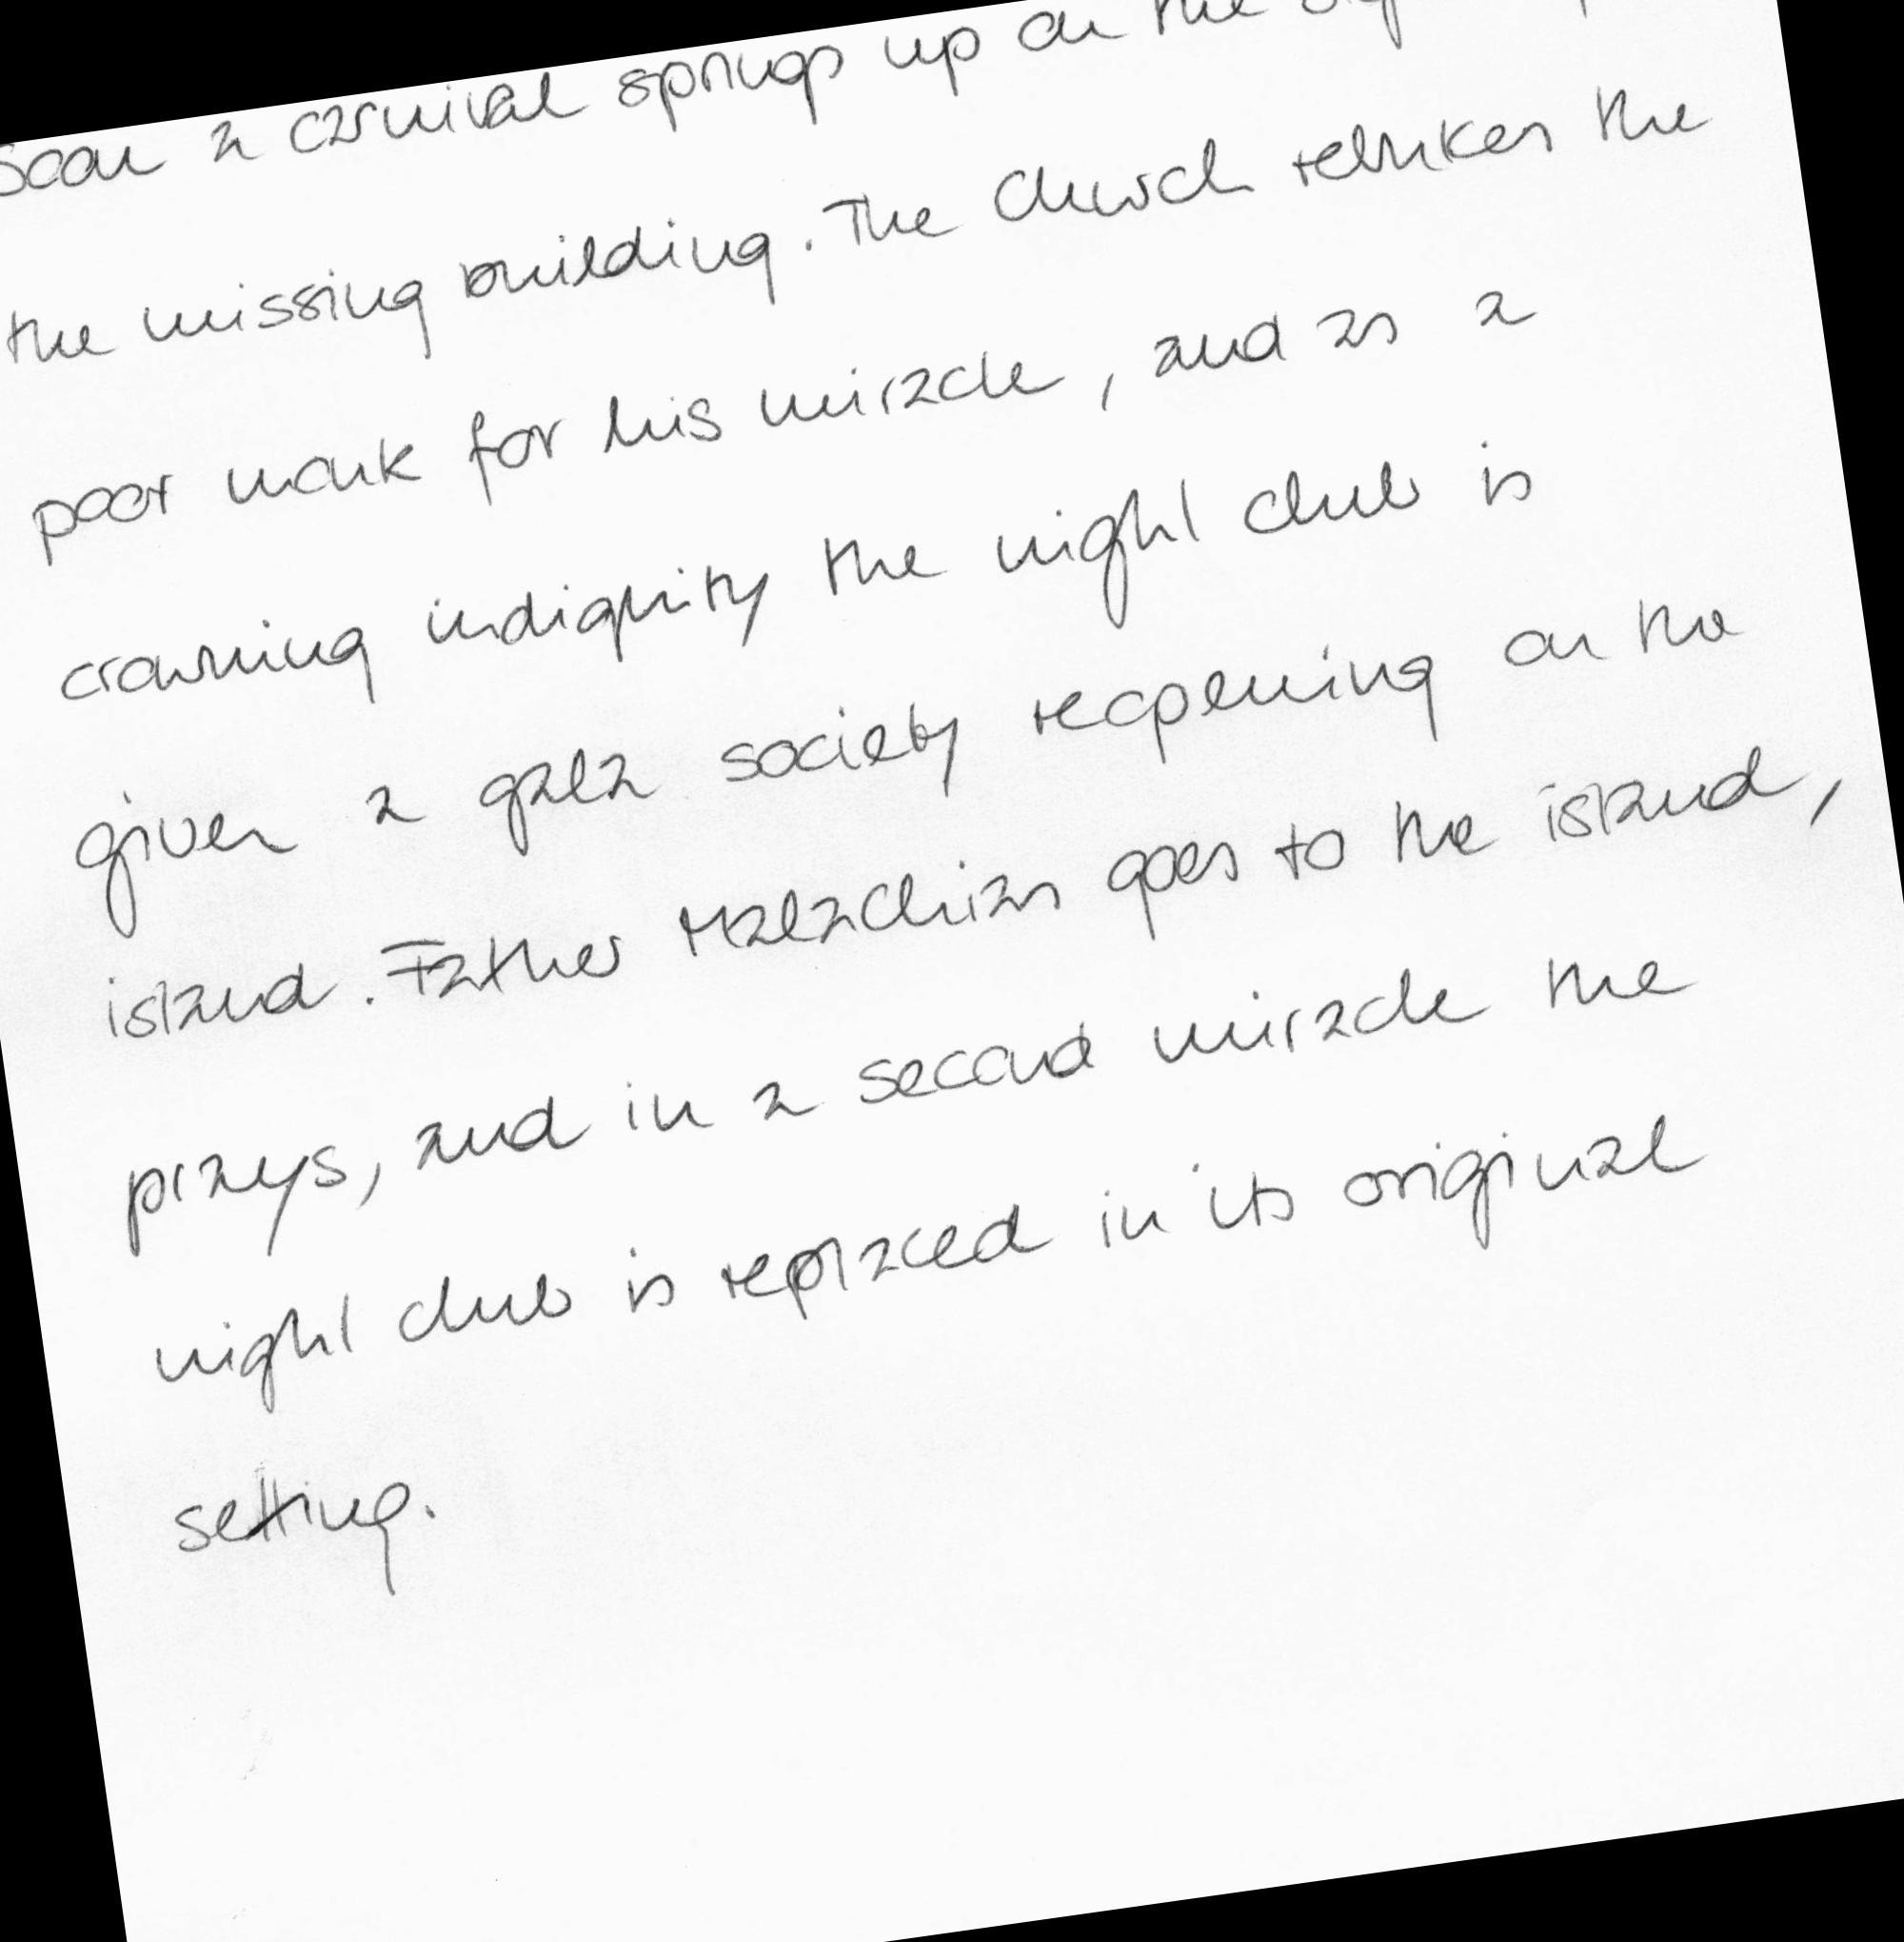 Soon a carnival springs up on the
the missing building. The Church rebukes the
poor monk for his miracle, and as a
crowning indignity the night club is
given a gala society reopening on the
island. Father Malachias goes to the island,
prays, and in a second miracle the
night club is replaced in its original
setting.